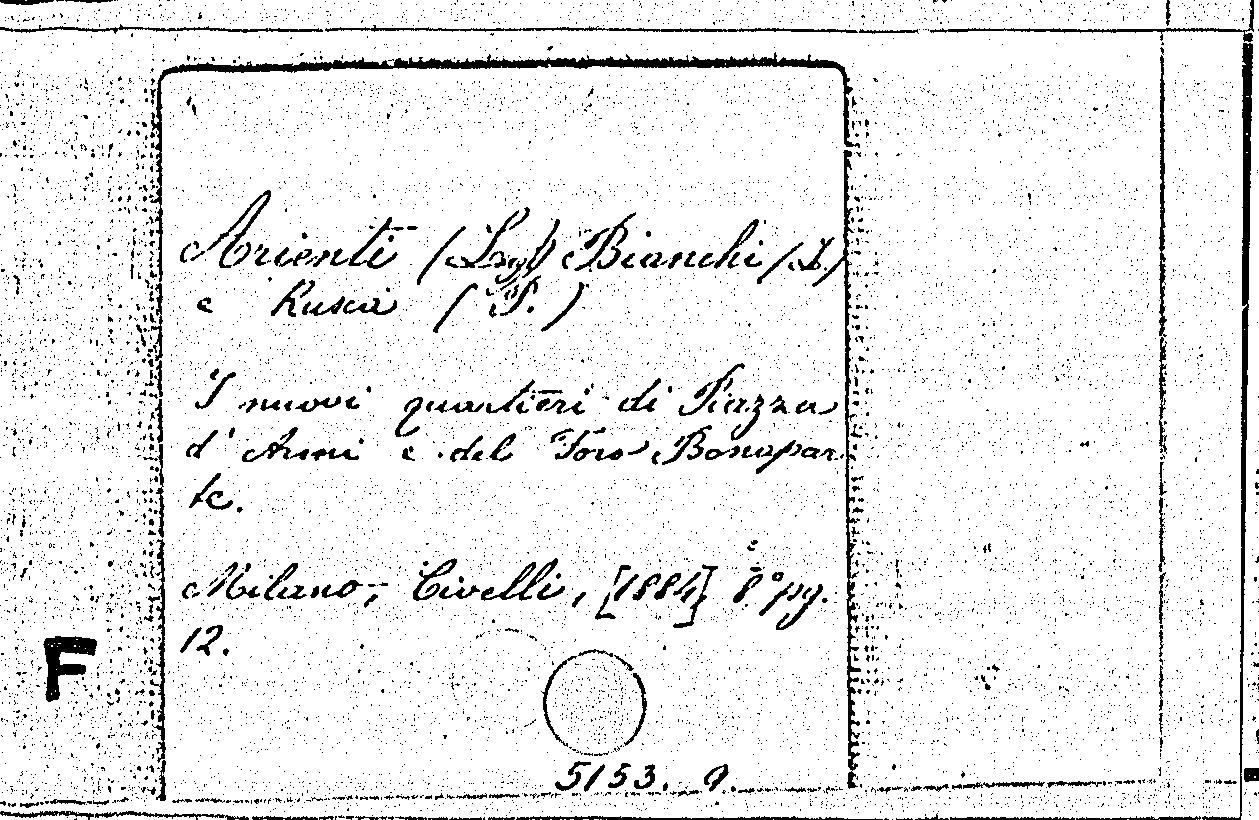 Arienti (Luigi) Bianchi (L.)
e Rusca (P.)
I nuovi quartieri di Piazza
d'Armi e del Foro Bonapar
te.
Milano, Civelli, [1884] 8° pg.
12.
F
5153. 9.